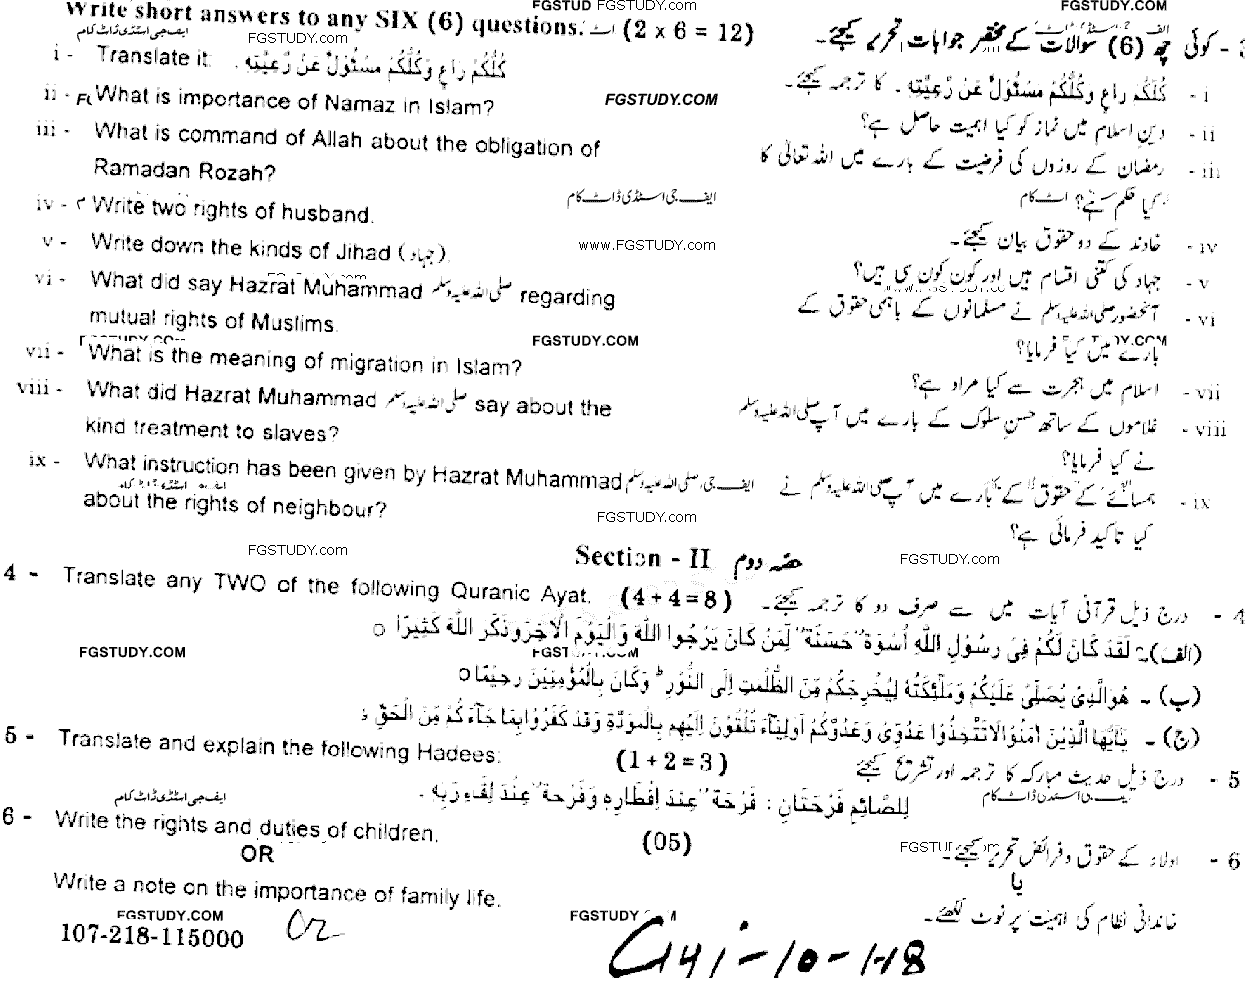 Write short answers to any SIX (6) questions. (2 x 6 = 12) کوئی چھ (6) سوالات کے مختصر جوابات تحریر کیجئے۔ -
i - Translate it: كُلُّكُمْ رَاعٍ وَكُلُّكُمْ مَسْئُوْلٌ عَنْ رَّعِيَّتِهِ .
i - كُلُّكُمْ رَاعٍ وَكُلُّكُمْ مَسْئُوْلٌ عَنْ رَّعِيَّتِهِ ۔ کا ترجمہ کیجئے۔
ii - What is importance of Namaz in Islam?
ii - دین اسلام میں نماز کو کیا اہمیت حاصل ہے؟
iii - What is command of Allah about the obligation of
Ramadan Rozah?
iii - رمضان کے روزوں کی فرضیت کے بارے میں اللہ تعالیٰ کا
کیا حکم ہے؟
iv - Write two rights of husband.
iv - خاوند کے دو حقوق بیان کیجئے۔
v - Write down the kinds of Jihad (جہاد).
v - جہاد کی کتنی اقسام ہیں اور کون کون سی ہیں؟
vi - What did say Hazrat Muhammad صلی اللہ علیہ وسلم regarding
mutual rights of Muslims.
vi - آنحضور صلی اللہ علیہ وسلم نے مسلمانوں کے باہمی حقوق کے
بارے میں کیا فرمایا؟
vii - What is the meaning of migration in Islam?
vii - اسلام میں ہجرت سے کیا مراد ہے؟
viii - What did Hazrat Muhammad صلی اللہ علیہ وسلم say about the
kind treatment to slaves?
viii - غلاموں کے ساتھ حسن سلوک کے بارے میں آپ صلی اللہ علیہ وسلم
نے کیا فرمایا؟
ix - What instruction has been given by Hazrat Muhammad صلی اللہ علیہ وسلم
about the rights of neighbour?
ix - ہمسائے کے حقوق کے بارے میں آپ صلی اللہ علیہ وسلم نے
کیا تاکید فرمائی ہے؟
Section - II حصہ دوم
4 - Translate any TWO of the following Quranic Ayat. (4+4=8) درج ذیل قرآنی آیات میں سے صرف دو کا ترجمہ کیجئے۔ - 4
(الف)۔ لَقَدْ كَانَ لَكُمْ فِى رَسُوْلِ اللّٰهِ اُسْوَةٌ حَسَنَةٌ لِّمَنْ كَانَ يَرْجُوا اللّٰهَ وَالْيَوْمَ الْاٰخِرَ وَذَكَرَ اللّٰهَ كَثِيْرًا ○
(ب)۔ هُوَ الَّذِىْ يُصَلِّىْ عَلَيْكُمْ وَمَلٰٓئِكَتُهٗ لِيُخْرِجَكُمْ مِّنَ الظُّلُمٰتِ اِلَى النُّوْرِ ؕ وَكَانَ بِالْمُؤْمِنِيْنَ رَحِيْمًا ○
(ج)۔ يٰٓاَيُّهَا الَّذِيْنَ اٰمَنُوْا لَا تَتَّخِذُوْا عَدُوِّىْ وَعَدُوَّكُمْ اَوْلِيَآءَ تُلْقُوْنَ اِلَيْهِمْ بِالْمَوَدَّةِ وَقَدْ كَفَرُوْا بِمَا جَآءَكُمْ مِّنَ الْحَقِّ
5 - Translate and explain the following Hadees: (1+2=3) درج ذیل حدیث مبارکہ کا ترجمہ اور تشریح کیجئے - 5
لِلصَّائِمِ فَرْحَتَانِ : فَرْحَةٌ عِنْدَ اِفْطَارِهٖ وَفَرْحَةٌ عِنْدَ لِقَاءِ رَبِّهٖ ۔
6 - Write the rights and duties of children. (05) اولاد کے حقوق و فرائض تحریر کیجئے۔ - 6
OR یا
Write a note on the importance of family life. خاندانی نظام کی اہمیت پر نوٹ لکھئے۔
107-218-115000
FGSTUDY.COM
www.FGSTUDY.com
ایف جی اسٹڈی ڈاٹ کام